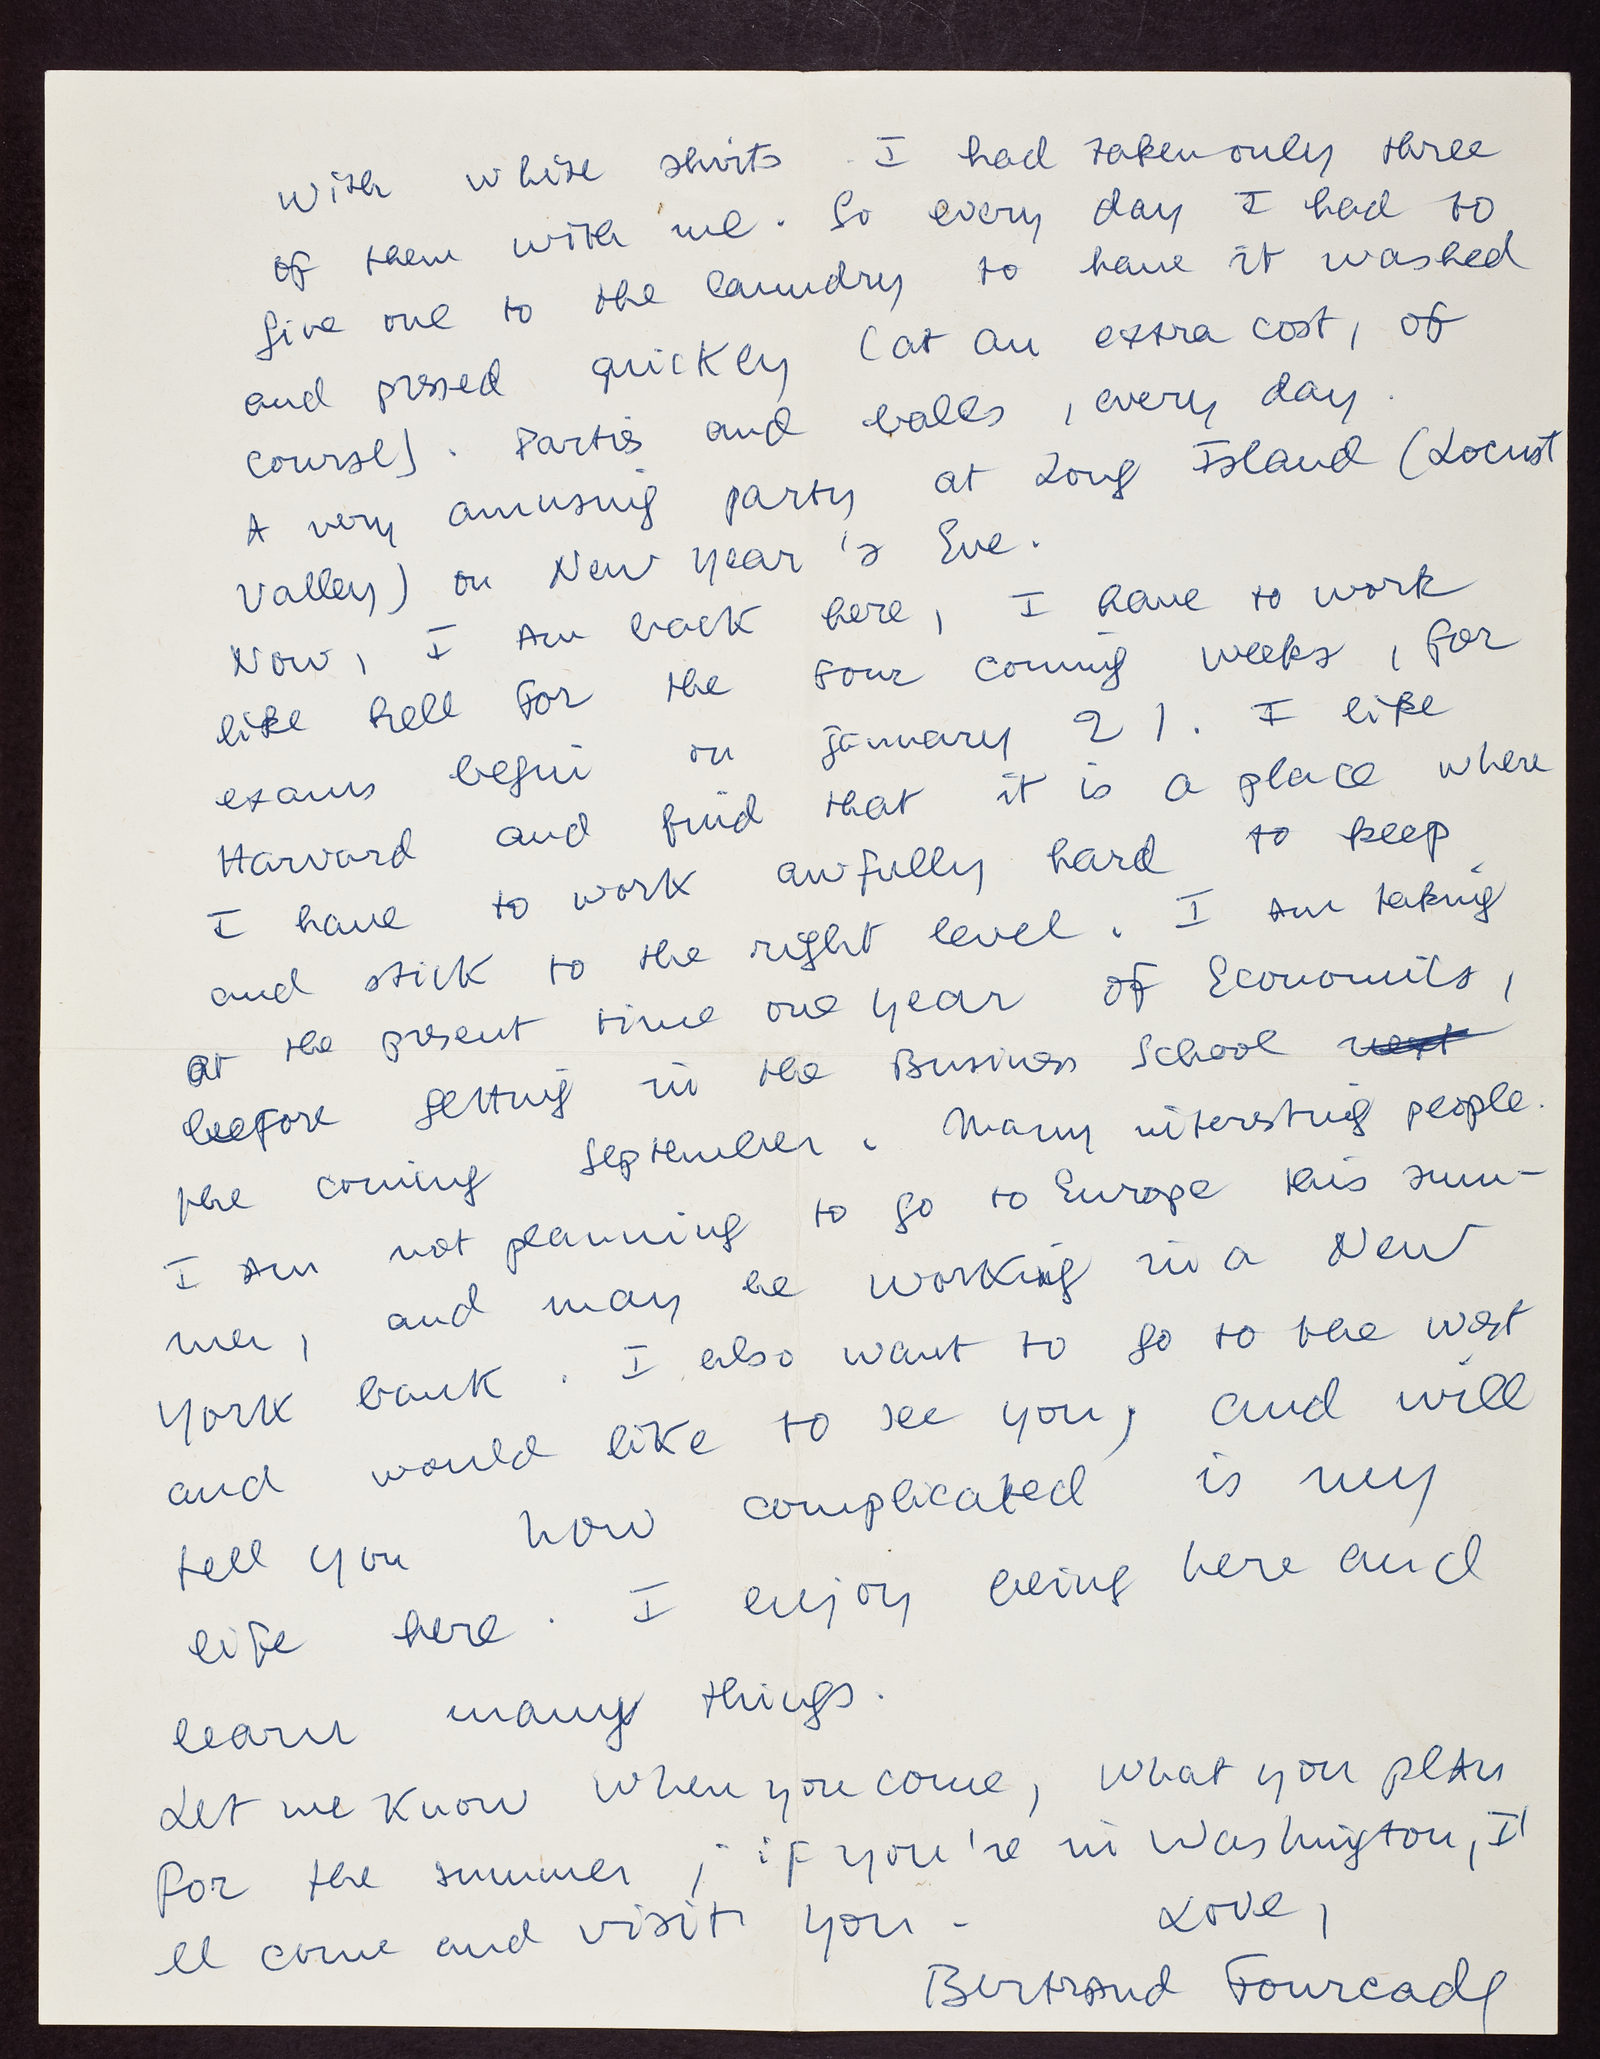 with white shirts. I had taken only three
of them with me. So every day I had to
give one to the laundry to have it washed
and pressed quickly (at an extra cost, of
course). Parties and balls, every day.
A very amusing party at Long Island (Locust
Valley) on New Year's Eve.
Now, I am back here, I have to work
like hell for the four coming weeks, for
exams begin on January 21. I like
Harvard and find that it is a place where
I have to work awfully hard to keep
and stick to the right level. I am taking
at the present time one year of Economics,
before getting in the Business School next
the coming September. Many interesting people.
I am not planning to go to Europe this sum-
mer, and may be working in a New
York bank. I also want to go to the west
and would like to see you, and will
tell you how complicated is my
life here. I enjoy being here and
learn many things.
Let me know when you come, what you plan
for the summer, if you're in Washington, I'
ll come and visit you - Love,
Bertrand Fourcade